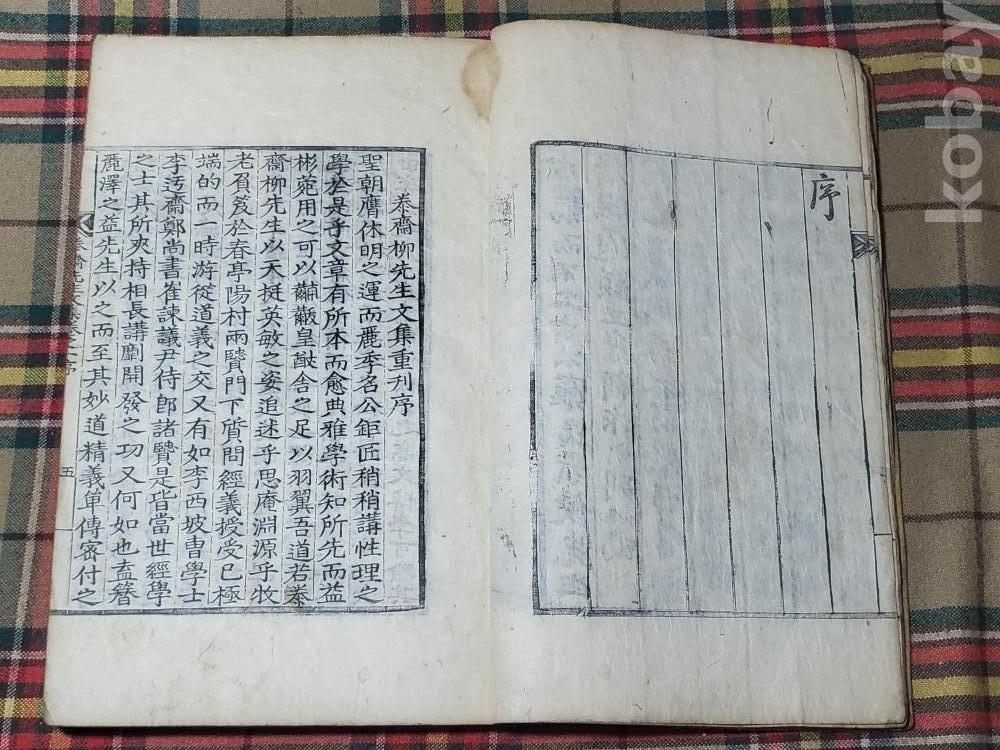 序
泰齋柳先生文集重刋序
聖朝膺休明之運而麗季名公鉅匠稍稍講性理之
學於是乎文章有所本而愈典雅學術知所先而益
彬菀用之可以黼黻皇猷舍之足以羽翼吾道若泰
齋柳先生以天挺英敏之姿追述乎思庵淵源乎牧
老負笈於春亭陽村兩賢門下質問經義授受已極
端的而一時游從道義之交又有如李西坡曺學士
李迃齋鄭尚書崔諫議尹侍郎諸賢是皆當世經學
之士其所夾持相長講劘開發之功又何如也盍簪
麗澤之益先生以之而至其妙道精義單傳密付之
五
kobay